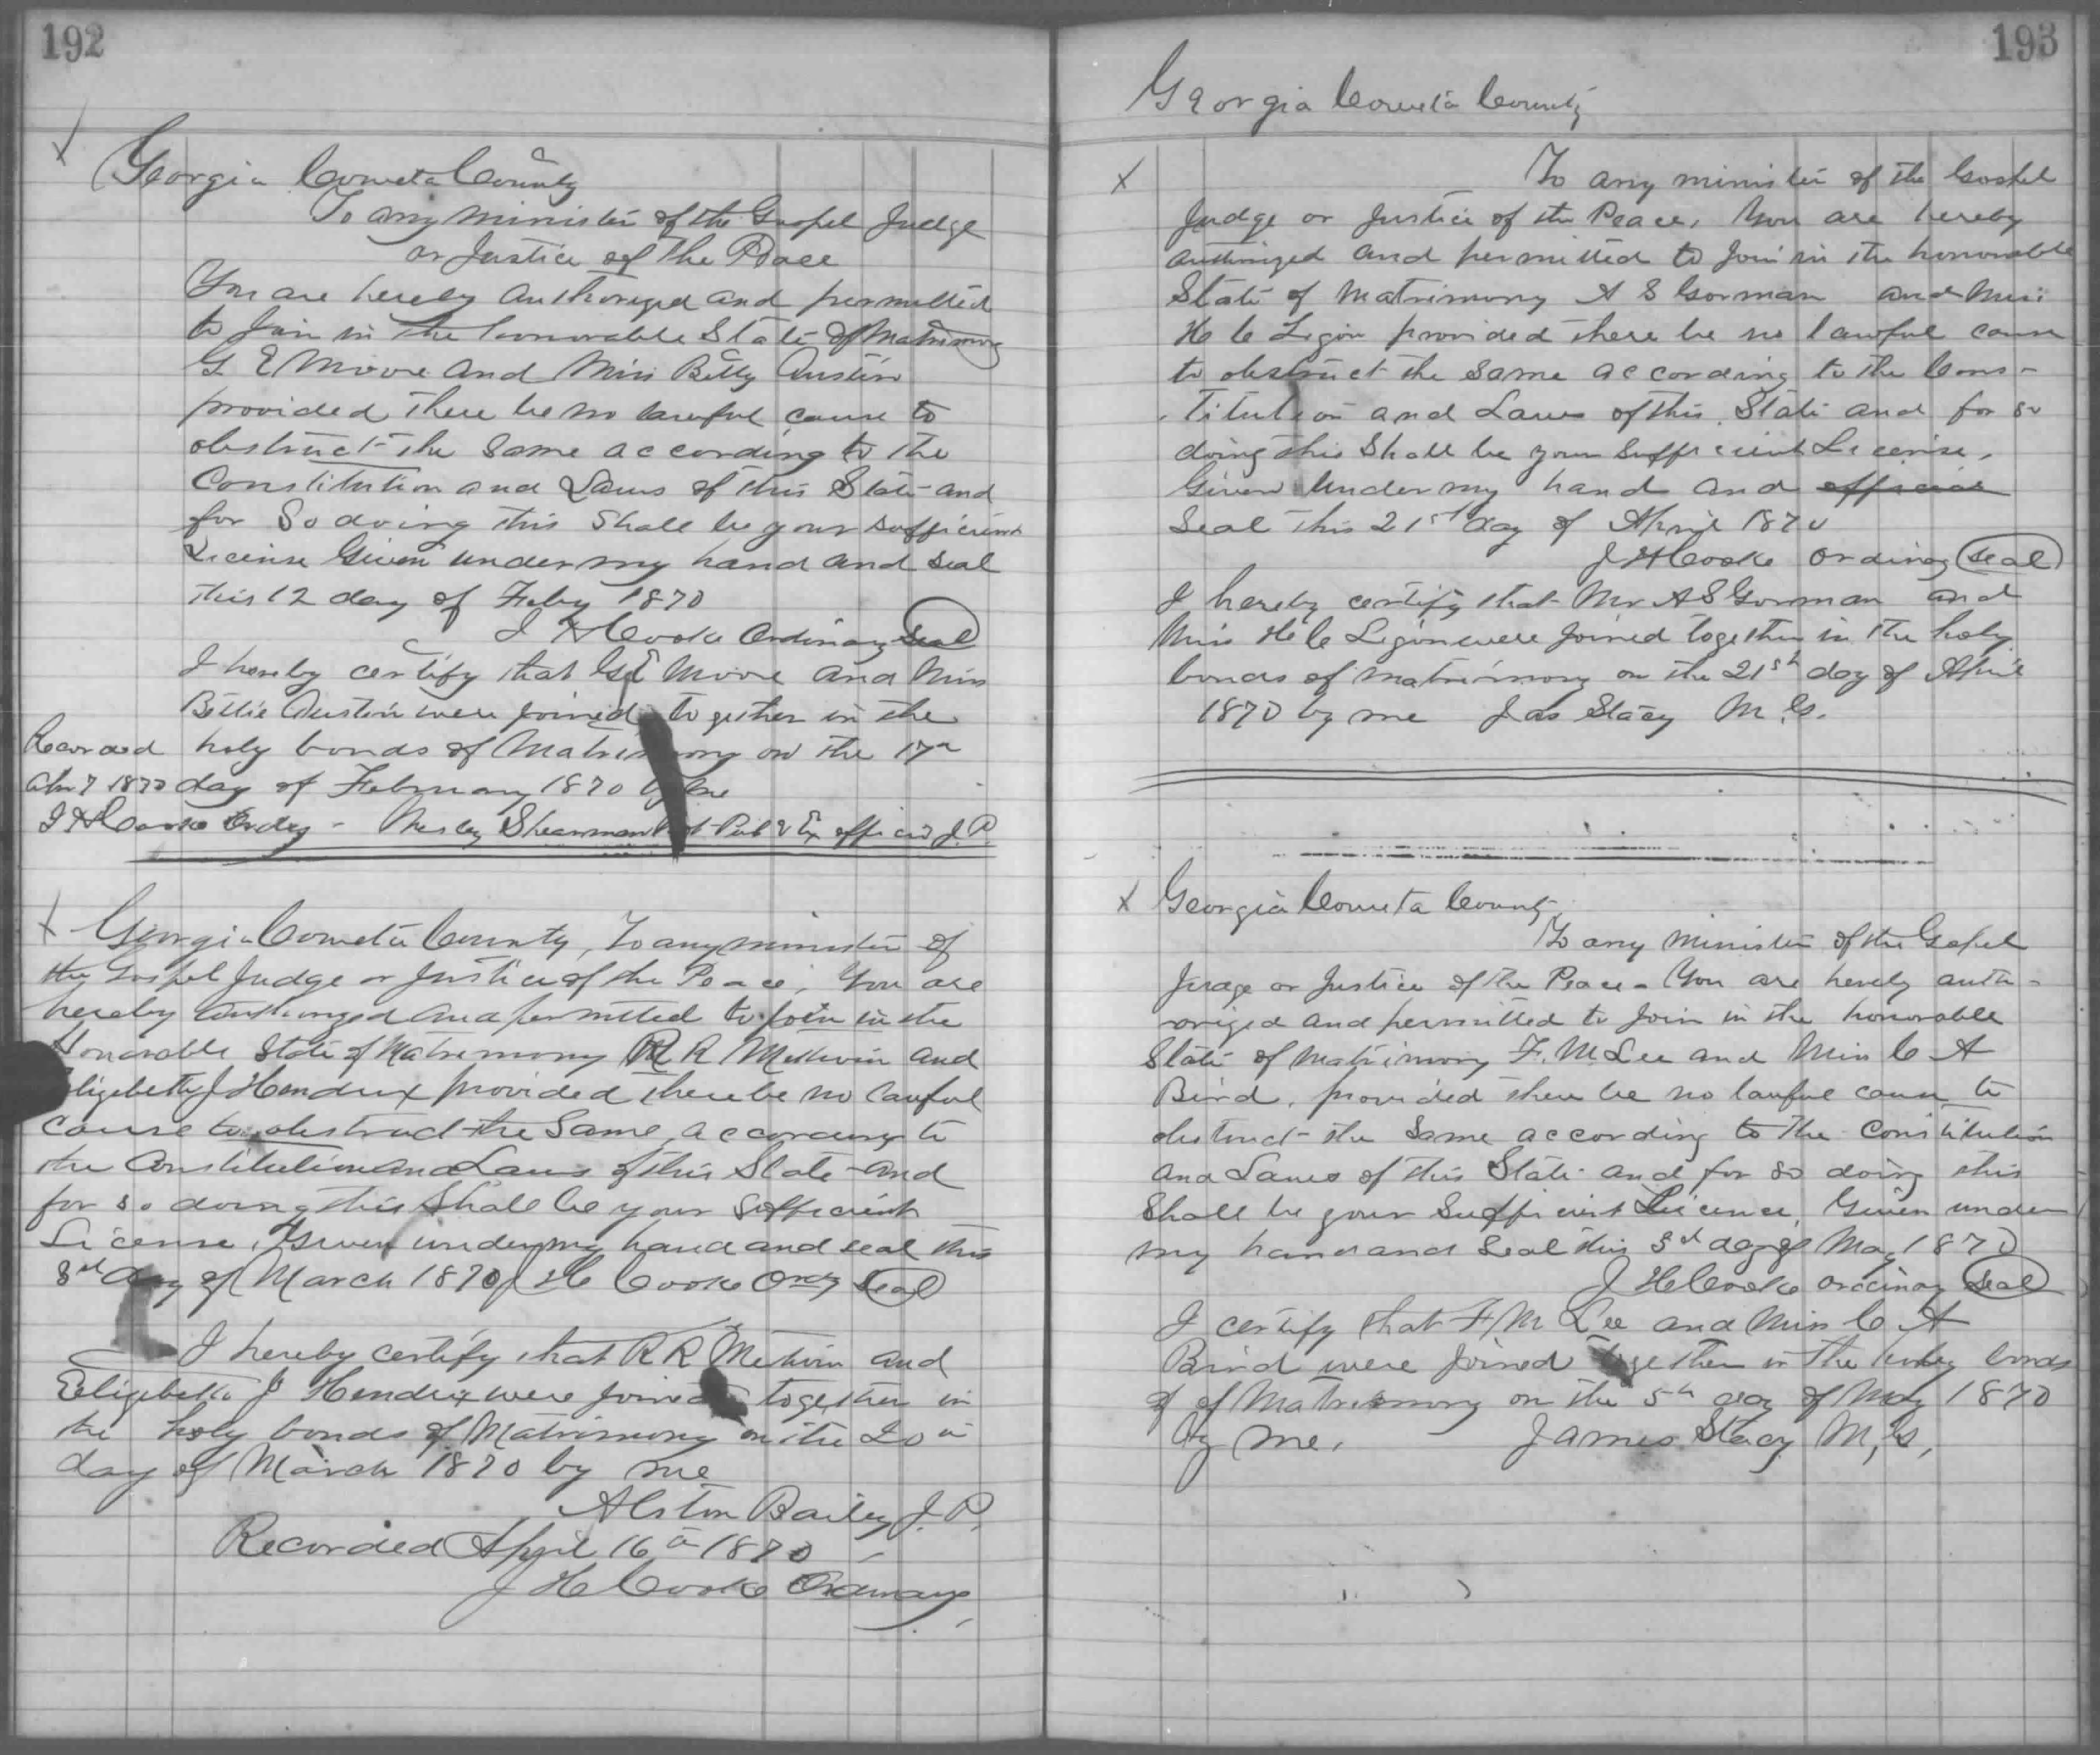 192
Georgia Coweta County
To any minister of the Gospel Judge
or Justice of the Peace
You are hereby authorized and permitted
to Join in the honorable State of Matrimony
G E Moore and Miss Billy Austin
provided there be no lawful cause to
obstruct the Same according to the
Constitution and Laws of this State and
for So doing this Shall be your sufficient
License Given under my hand and seal
this 12 day of Feby 1870
J H Cooke Ordinary Seal
I hereby certify that G E Moore and Miss
Billie Austin were joined together in the
Recorded holy bonds of Matrimony on the 17th
Apr 7 1870 day of February 1870 by me
J H Cooke Ordry - Shearman Not Pub & Ex officio J. P.
Georgia Coweta County, To any minister of
the Gospel Judge or Justice of the Peace, You are
hereby authorized and permitted to join in the
Honorable State of Matrimony R R and
Elizabeth J Hendrix provided there be no lawful
Cause to obstruct the Same according to
the Constitution and Laws of this State and
for so doing this Shall be your sufficient
License, Given under my hand and seal this
3rd day of March 1870 J H Cooke Ordry Seal
I hereby certify that R R and
Elizabeth J Hendrix were joined together in
the holy bonds of Matrimony on the 20th
day of March 1870 by me
Alston Bailey J. P.
Recorded April 16th 1870
J H Cooke Ordinary
193
Georgia Coweta County
To any minister of the Gospel
Judge or Justice of the Peace, You are hereby
authorized and permitted to Join in the honorable
State of Matrimony A S Gorman and Miss
H C Ligon provided there be no lawful cause
to obstruct the Same according to the Cons-
titution and Laws of this State and for so
doing this Shall be your Sufficient License,
Given Under my hand and official
Seal this 21st day of April 1870
J H Cooke Ordinary Seal
I hereby certify that Mr A S Gorman and
Miss H C Ligon were joined together in the holy
bonds of matrimony on the 21st day of April
1870 by me Jas Stacy M. G.
Georgia Coweta County
To any Minister of the Gospel
Judge or Justice of the Peace - You are hereby auth-
orized and permitted to Join in the honorable
State of Matrimony F. M Lee and Miss C A
Bird, provided there be no lawful cause to
obstruct the Same according to the Constitution
and Laws of this State and for so doing this
Shall be your Sufficient License, Given under
my hand and Seal this 3d day of May 1870
J H Cooke Ordinary Seal
I certify that F M Lee and Miss C A
Bird were joined together in the holy bonds
of of Matrimony on the 5th day of May 1870
by me, James Stacy M, G,